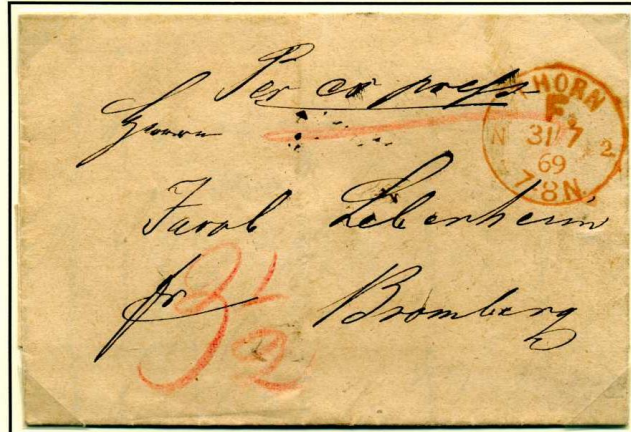 Per express
Herrn
THORN
F.
N 31 7 2.
69
7-8 N.
Jacob Lebenheim
fr Bromberg
3 1/2